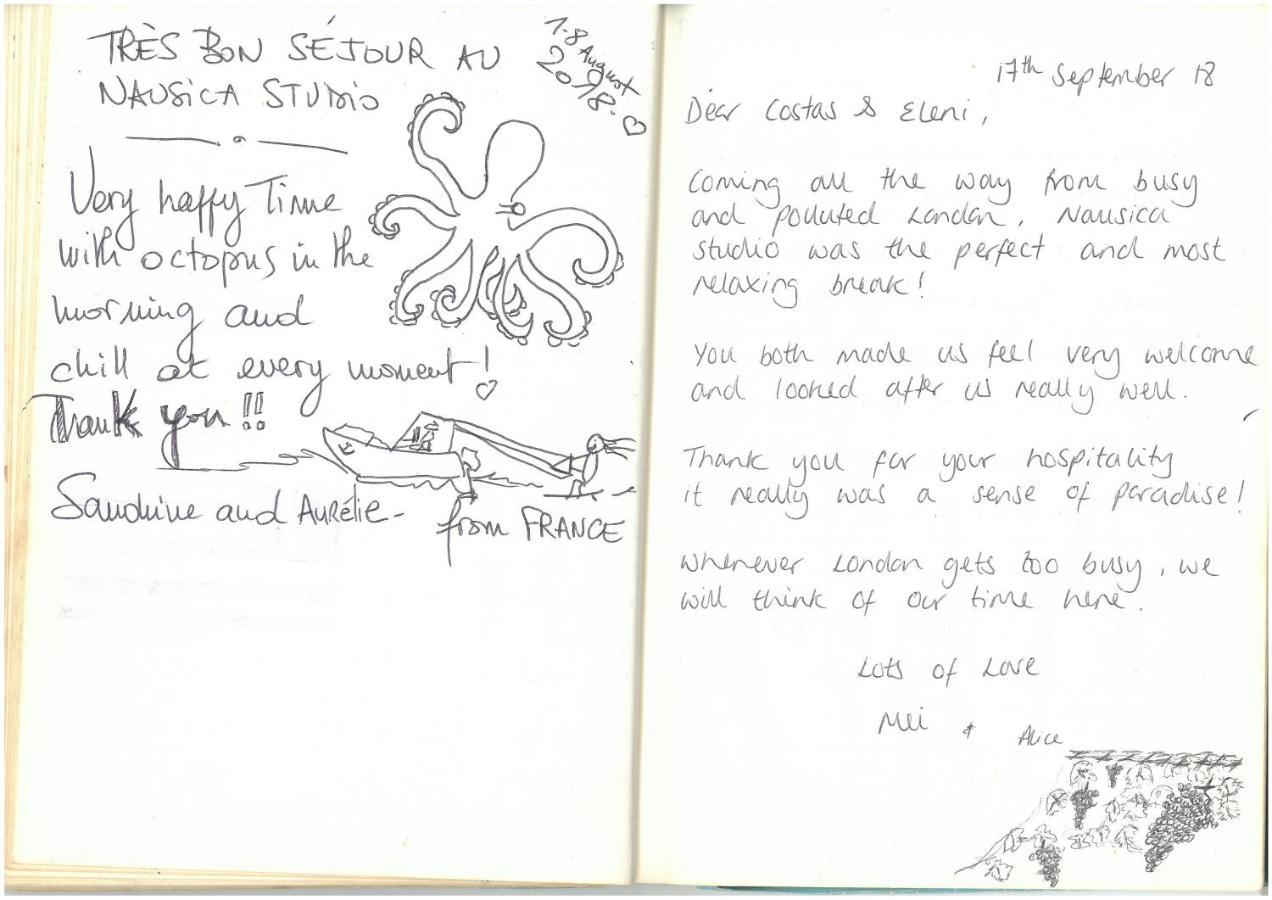 TRÈS BON SÉJOUR AU
NAUSICA STUDIO
1-8 August
2018.
Very happy Time
with octopus in the
morning and
chill at every moment!
Thank you!!
Sandrine and AURÉLIE-
from FRANCE
17th September 18
Dear Costas & Eleni,
Coming all the way from busy
and polluted London, Nausica
studio was the perfect and most
relaxing break!
You both made us feel very welcome
and looked after us really well.
Thank you for your hospitality
it really was a sense of paradise!
Whenever London gets too busy, we
will think of our time here.
Lots of Love
Mei & Alice